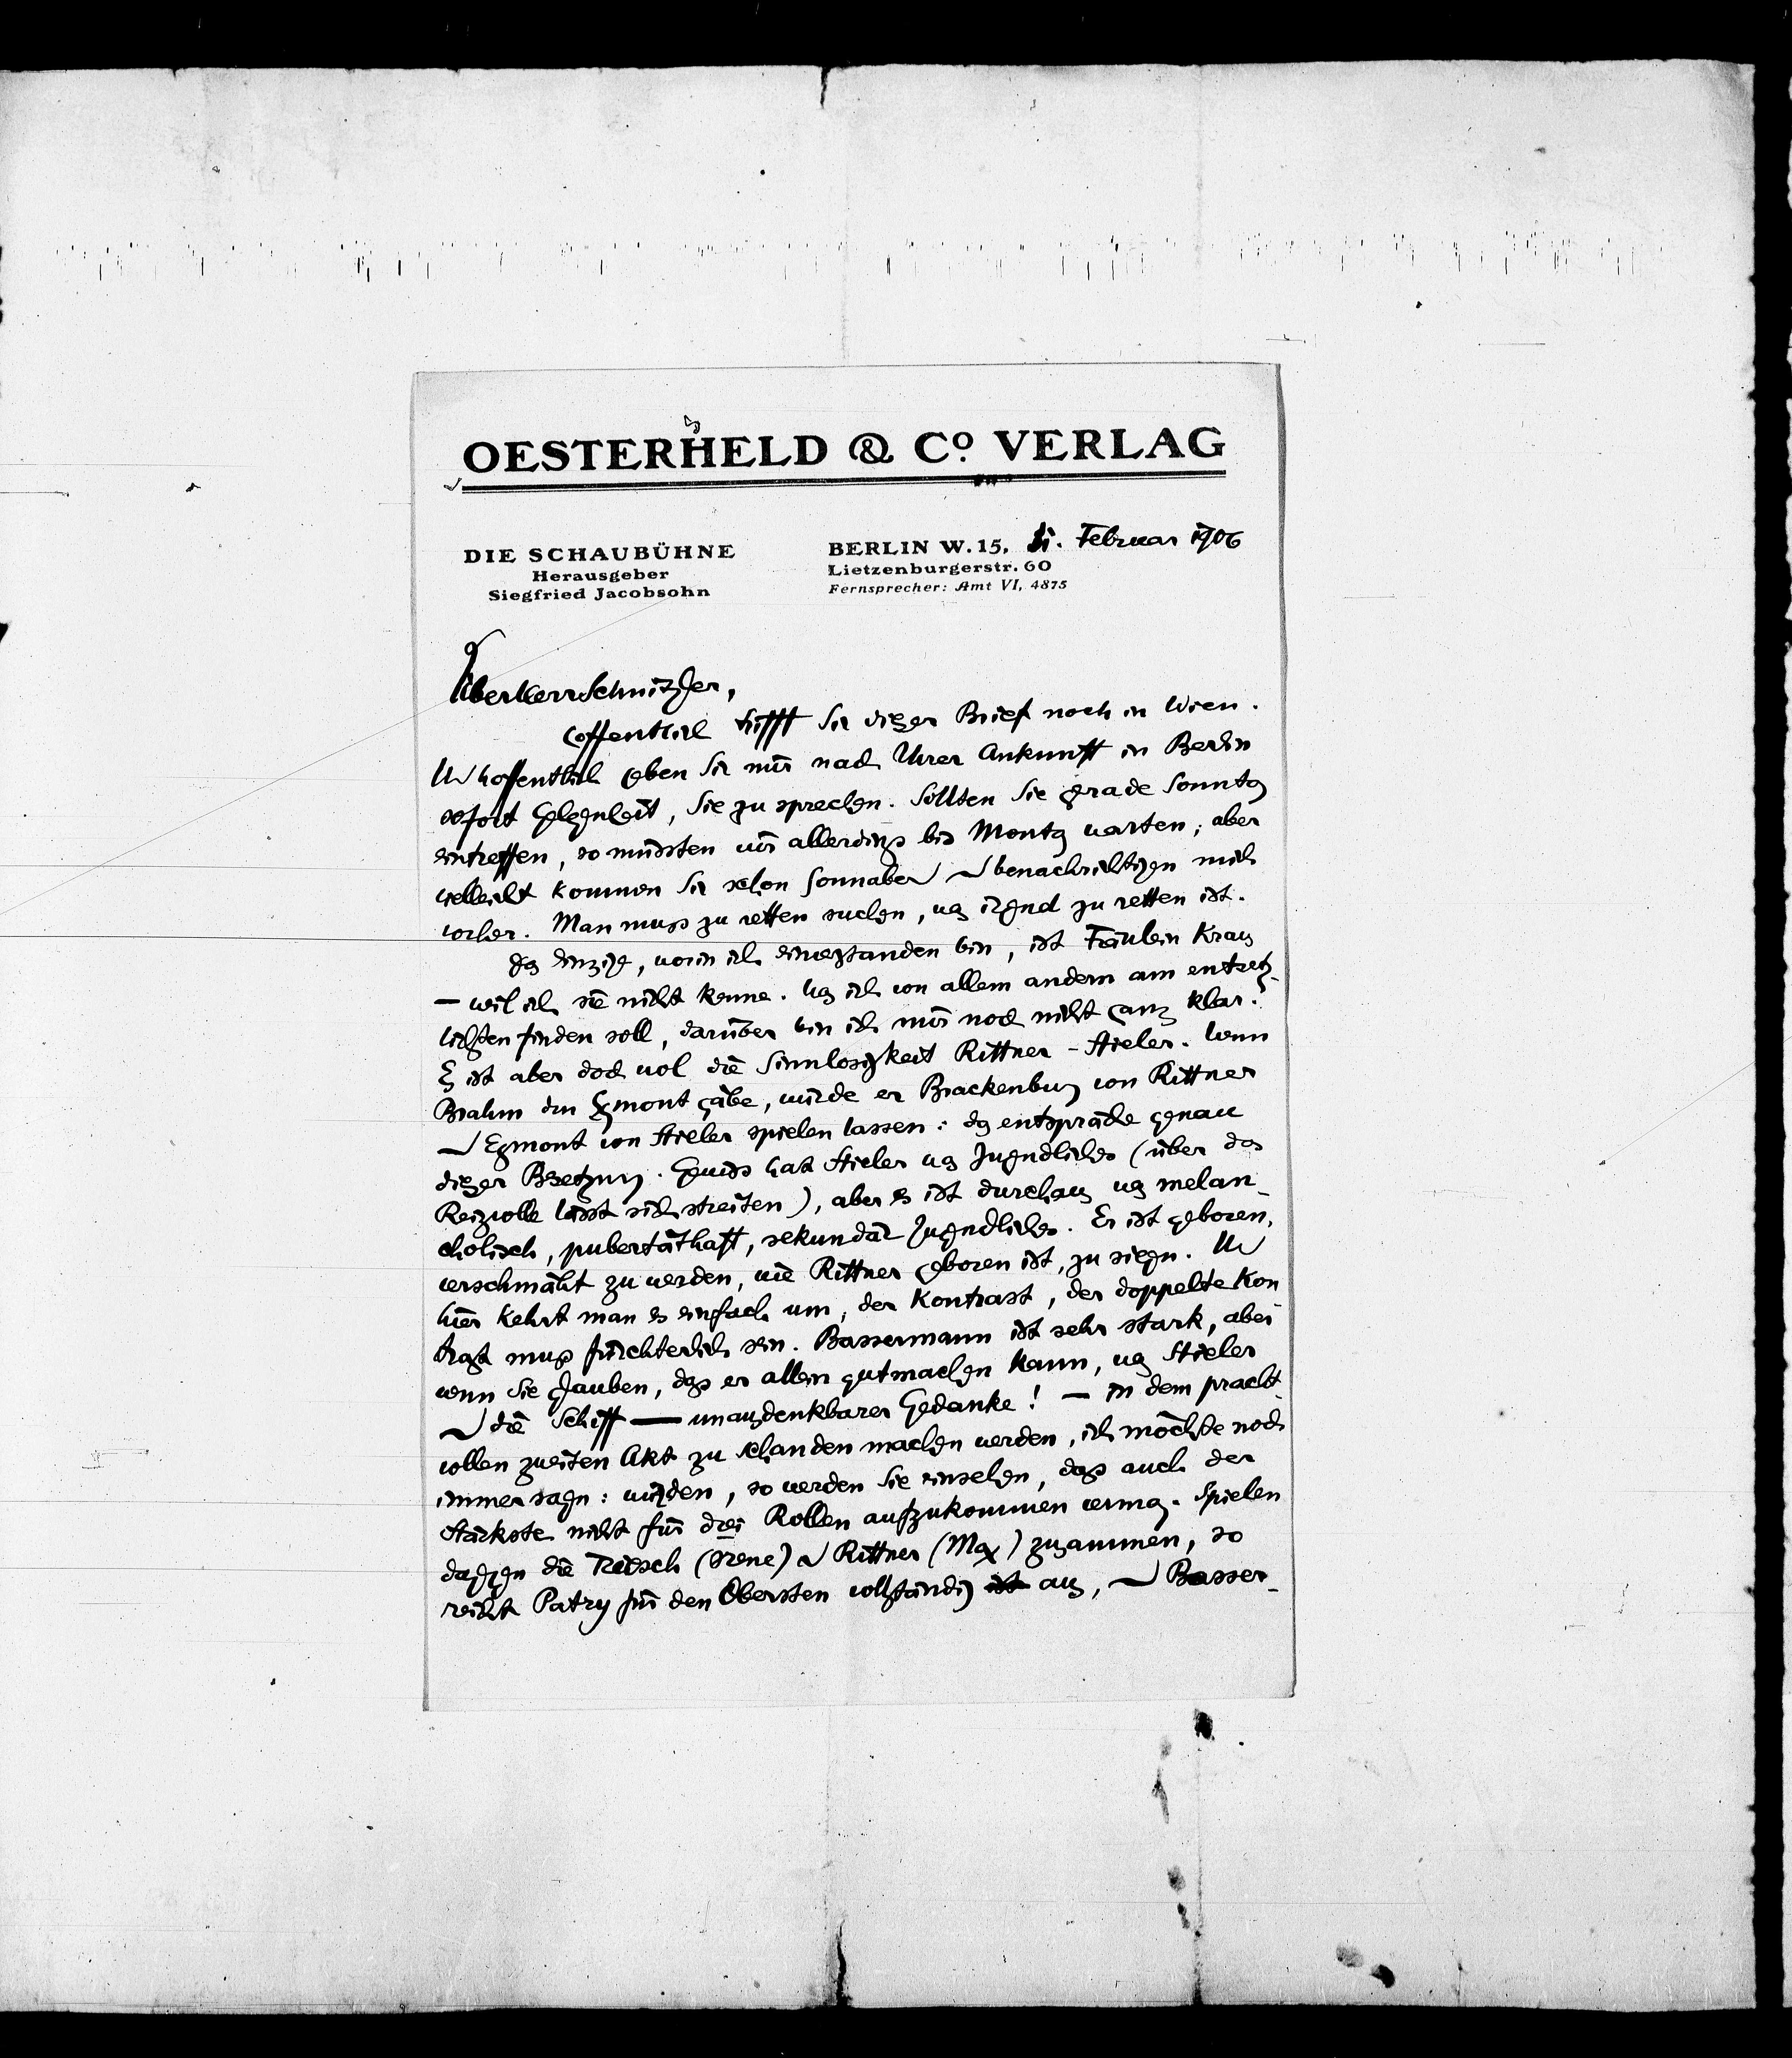 OESTERHELD & Co. VERLAG
DIE SCHAUBÜHNE
Herausgeber
Siegfried Jacobsohn
BERLIN W. 15, Februar 1906
Lietzenburgerstr. 60
Fernsprecher: Amt VI, 4875
lieber Herr Schnitzler,
hoffentlich trifft Sie dieser Brief noch in Wien.
Und hoffentlich geben Sie mir nach Ihrer Ankunft in Berlin
sofort Gelegenheit, Sie zu sprechen. Sollten Sie grade Sonntag
eintreffen, so müssten wir allerdings bis Montag warten; aber
vielleicht kommen Sie schon Sonnabend und benachrichtigen mich
vorher. Man muss zu retten suchen, was irgend zu retten ist.
Das Einzige, worin ich einverstanden bin, ist Fräulein Kraus
— weil ich sie nicht kenne. Was ich von allem andern am entsetz-
lichsten finden soll, darüber bin ich mir noch nicht ganz klar.
Es ist aber doch wol die Sinnlosigkeit Rittner-Stieler. Wenn
Brahm den Egmont gäbe, würde er Brackenburg von Rittner
und Egmont von Stieler spielen lassen: das entspräche genau
dieser Besetzung. Gewiss hat Stieler was Jugendliches (über das
Reizvolle lässt sich streiten), aber es ist durchaus was melan-
cholisch, pubertäthaft, sekundär Jugendliches. Er ist geboren,
verschmäht zu werden, wie Rittner geboren ist, zu siegen. Und
hier kehrt man es einfach um; der Kontrast, der doppelte Kon
trast muss fürchterlich sein. Bassermann ist sehr stark, aber
wenn Sie glauben, dass er allein gutmachen kann, was Stieler
und die Schiff — unausdenkbarer Gedanke! — in dem pracht-
vollen zweiten Akt zu schanden machen werden, ich möchte noch
immer sagen: würden, so werden Sie einsehen, dass auch der
Stärkste nicht für drei Rollen aufzukommen vermag. Spielen
dagegen die Triesch (Irene) und Rittner (Max) zusammen, so
reicht Patry für den Obersten vollständig ist aus, und Basser-